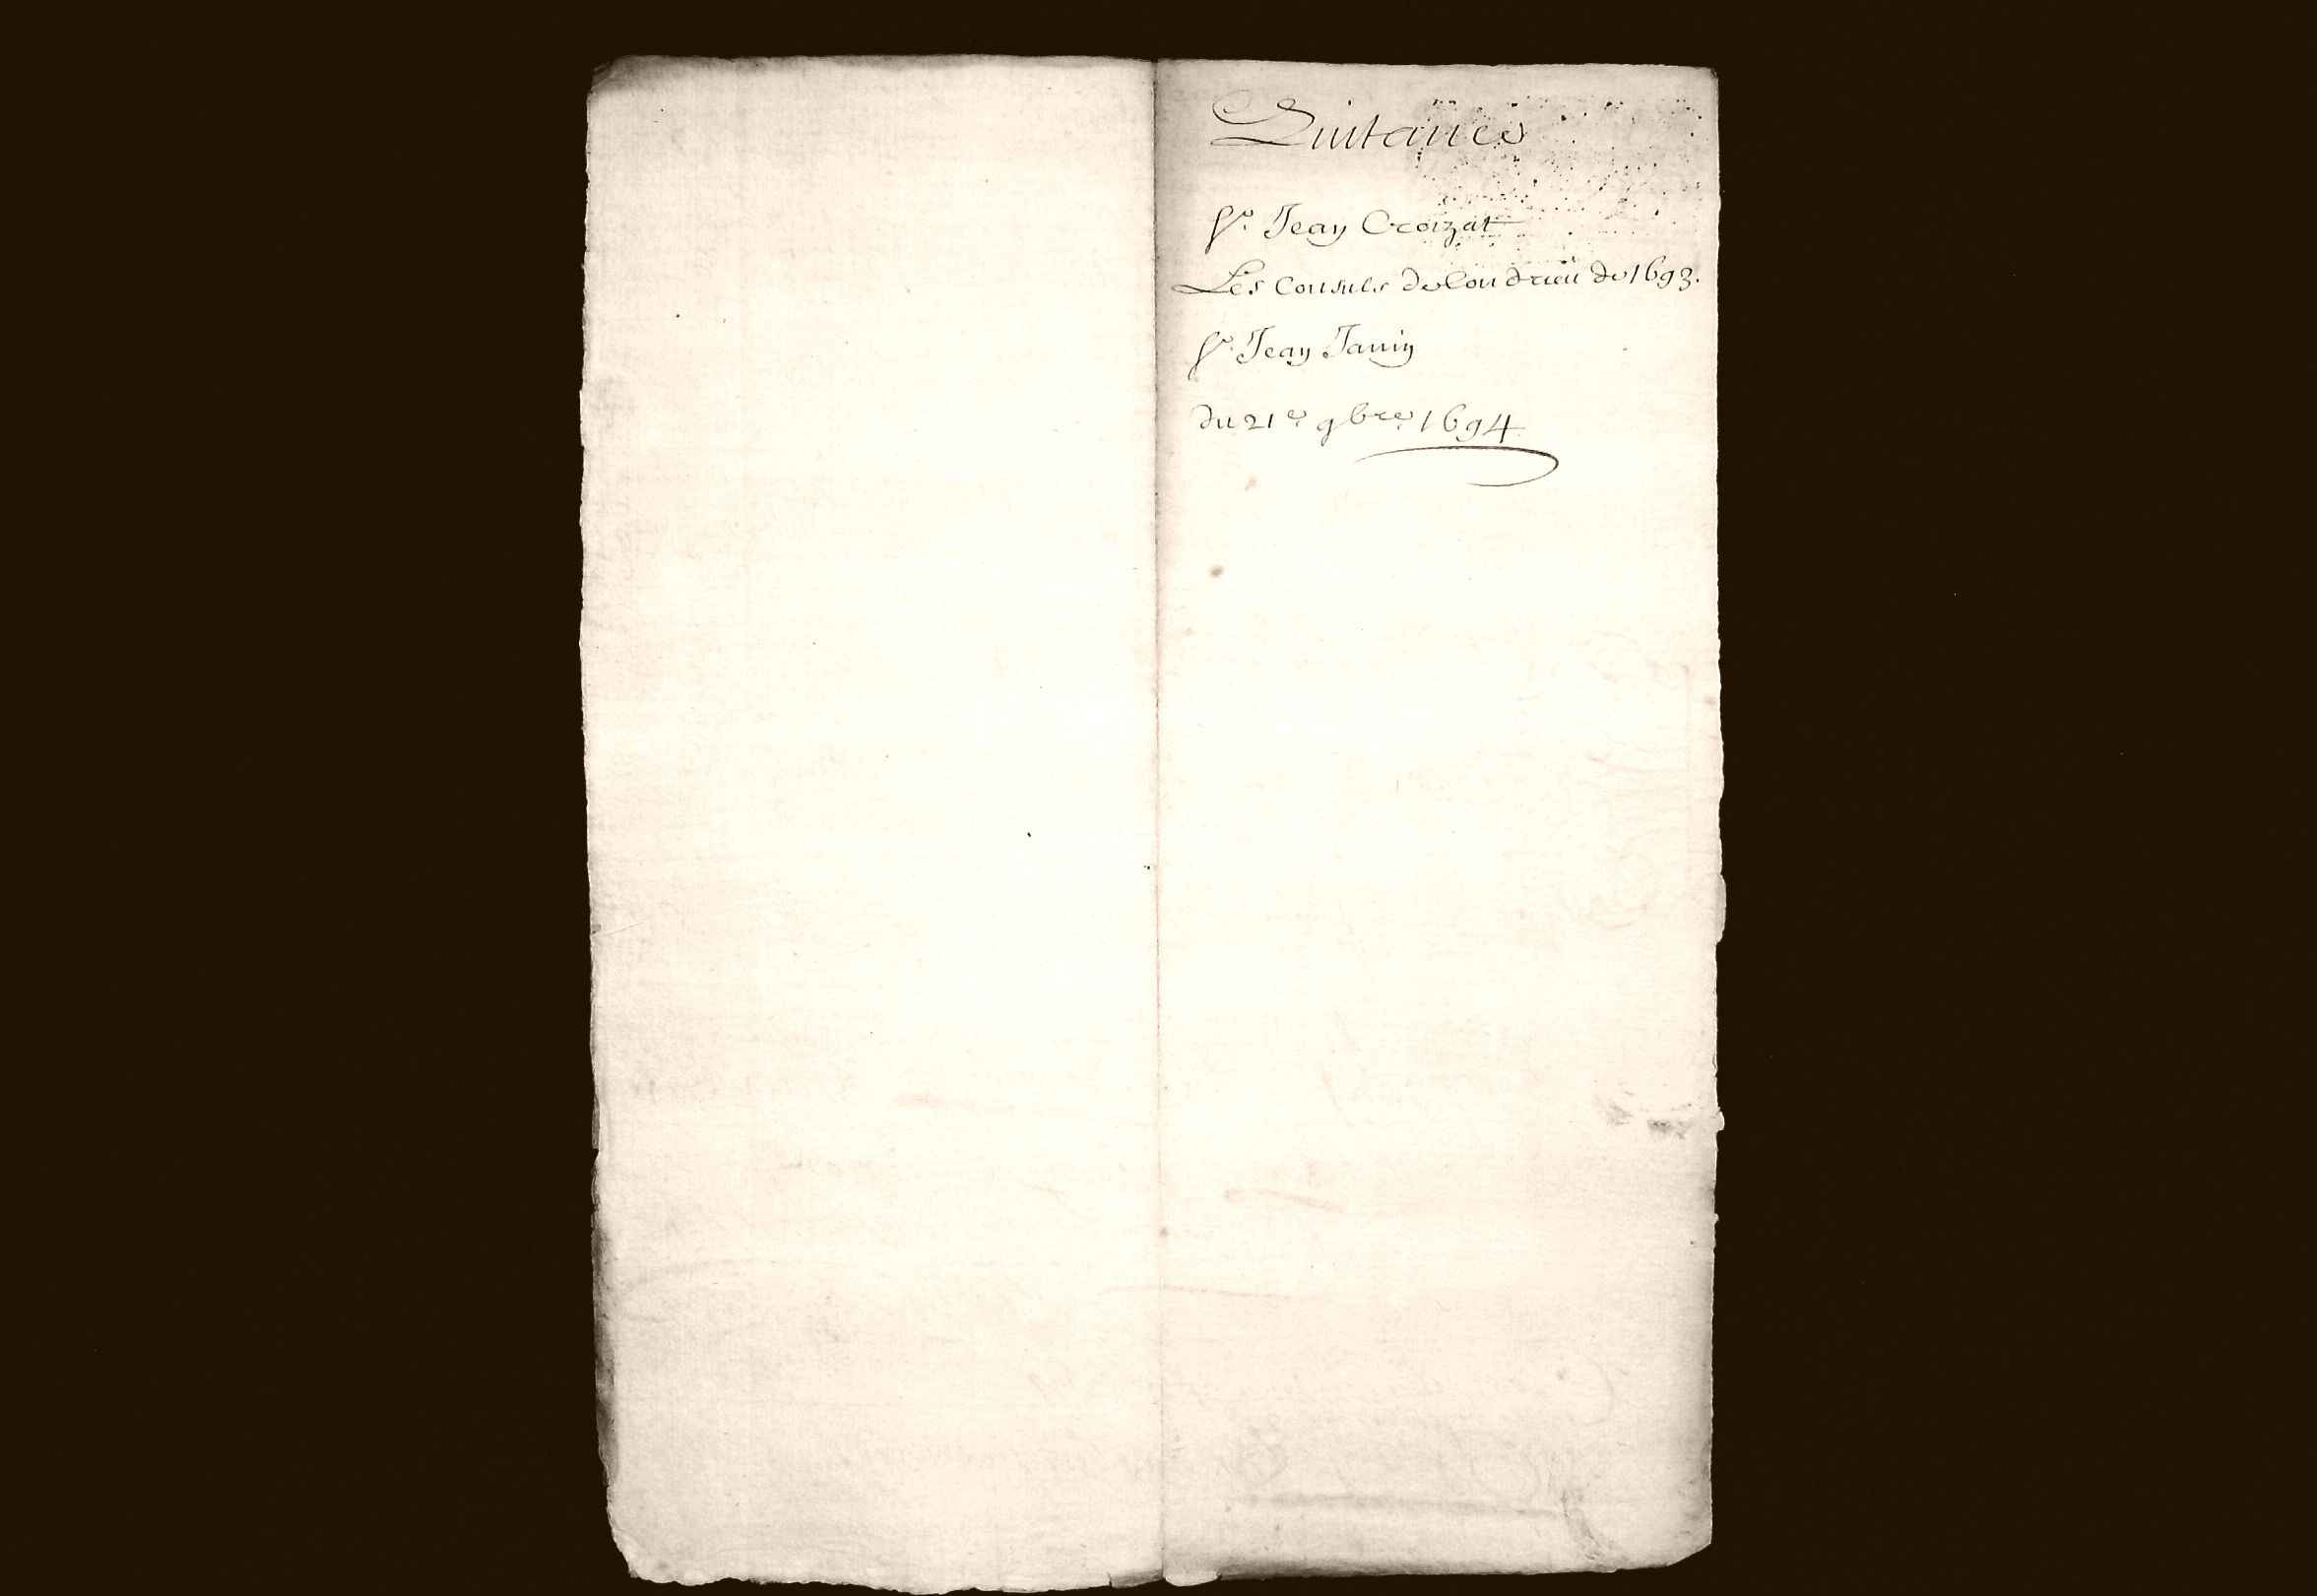 Quitance
Sr. Jean Croizat
Les Consuls de Condrieu de 1693.
Sr. Jean Janin
du 21e 9bre 1694